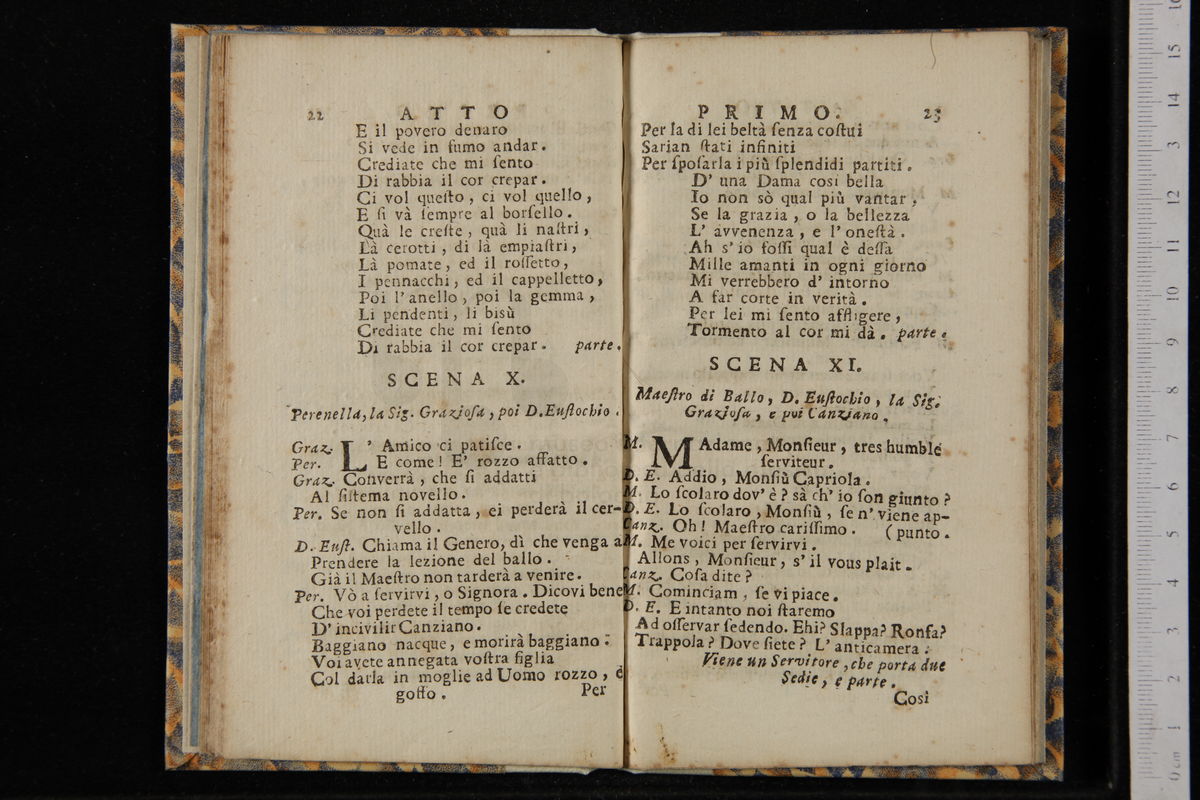 22 ATTO
E il povero denaro
Si vede in fumo andar.
Crediate che mi ſento
Di rabbia il cor crepar.
Ci vol queſto, ci vol quello,
E ſi và ſempre al borſello.
Quà le creſte, quà li naſtri,
Là cerotti, di là empiaſtri,
Là pomate, ed il roſſetto,
I pennacchi, ed il cappelletto,
Poi l'anello, poi la gemma,
Li pendenti, li bisù
Crediate che mi ſento
Di rabbia il cor crepar. parte.
SCENA X.
Perenella, la Sig. Grazioſa, poi D. Euſtochio.
Graz. L' Amico ci patiſce.
Per. E come! E' rozzo affatto.
Graz. Converrà, che ſi addatti
Al ſiſtema novello.
Per. Se non ſi addatta, ei perderà il cer-
vello.
D. Euſt. Chiama il Genero, dì che venga a
Prendere la lezione del ballo.
Già il Maeſtro non tarderà a venire.
Per. Vò a ſervirvi, o Signora. Dicovi bene
Che voi perdete il tempo ſe credete
D'incivilir Canziano.
Baggiano nacque, e morirà baggiano:
Voi avete annegata voſtra figlia
Col darla in moglie ad Uomo rozzo, è
goffo. Per
PRIMO. 23
Per la di lei beltà ſenza coſtui
Sarian ſtati infiniti
Per ſpoſarla i più ſplendidi partiti.
D' una Dama così bella
Io non sò qual più vantar,
Se la grazia, o la bellezza
L' avvenenza, e l'oneſtà.
Ah s' io foſſi qual è deſſa
Mille amanti in ogni giorno
Mi verrebbero d' intorno
A far corte in verità.
Per lei mi ſento affligere,
Tormento al cor mi dà. parte.
SCENA XI.
Maeſtro di Ballo, D. Euſtochio, la Sig.
Grazioſa, e poi Canziano.
M. MAdame, Monſieur, tres humble
ſerviteur.
D. E. Addio, Monſiù Capriola.
M. Lo ſcolaro dov' è? sà ch' io ſon giunto?
D. E. Lo ſcolaro, Monſiù, ſe n' viene ap-
Canz. Oh! Maeſtro cariſſimo. (punto.
M. Me voici per ſervirvi.
Allons, Monſieur, s' il vous plait.
Canz. Coſa dite?
M. Cominciam, ſe vi piace.
D. E. E intanto noi ſtaremo
Ad oſſervar ſedendo. Ehi? Slappa? Ronfa?
Trappola? Dove ſiete? L' anticamera:
Viene un Servitore, che porta due
Sedie, e parte.
Così
0 cm 1 2 3 4 5 6 7 8 9 10 11 12 13 14 15